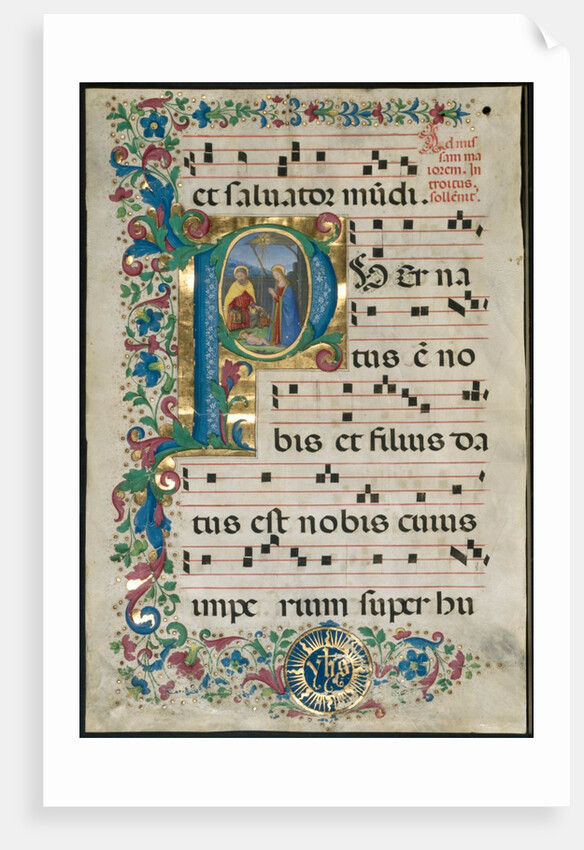 et saluator mũdi.
Ad mis
sam ma
iorem. In
troitus.
sollẽnit.
PUer na
tus ẽ no
bis et filius da
tus est nobis cuius
impe rium super hu
yhs